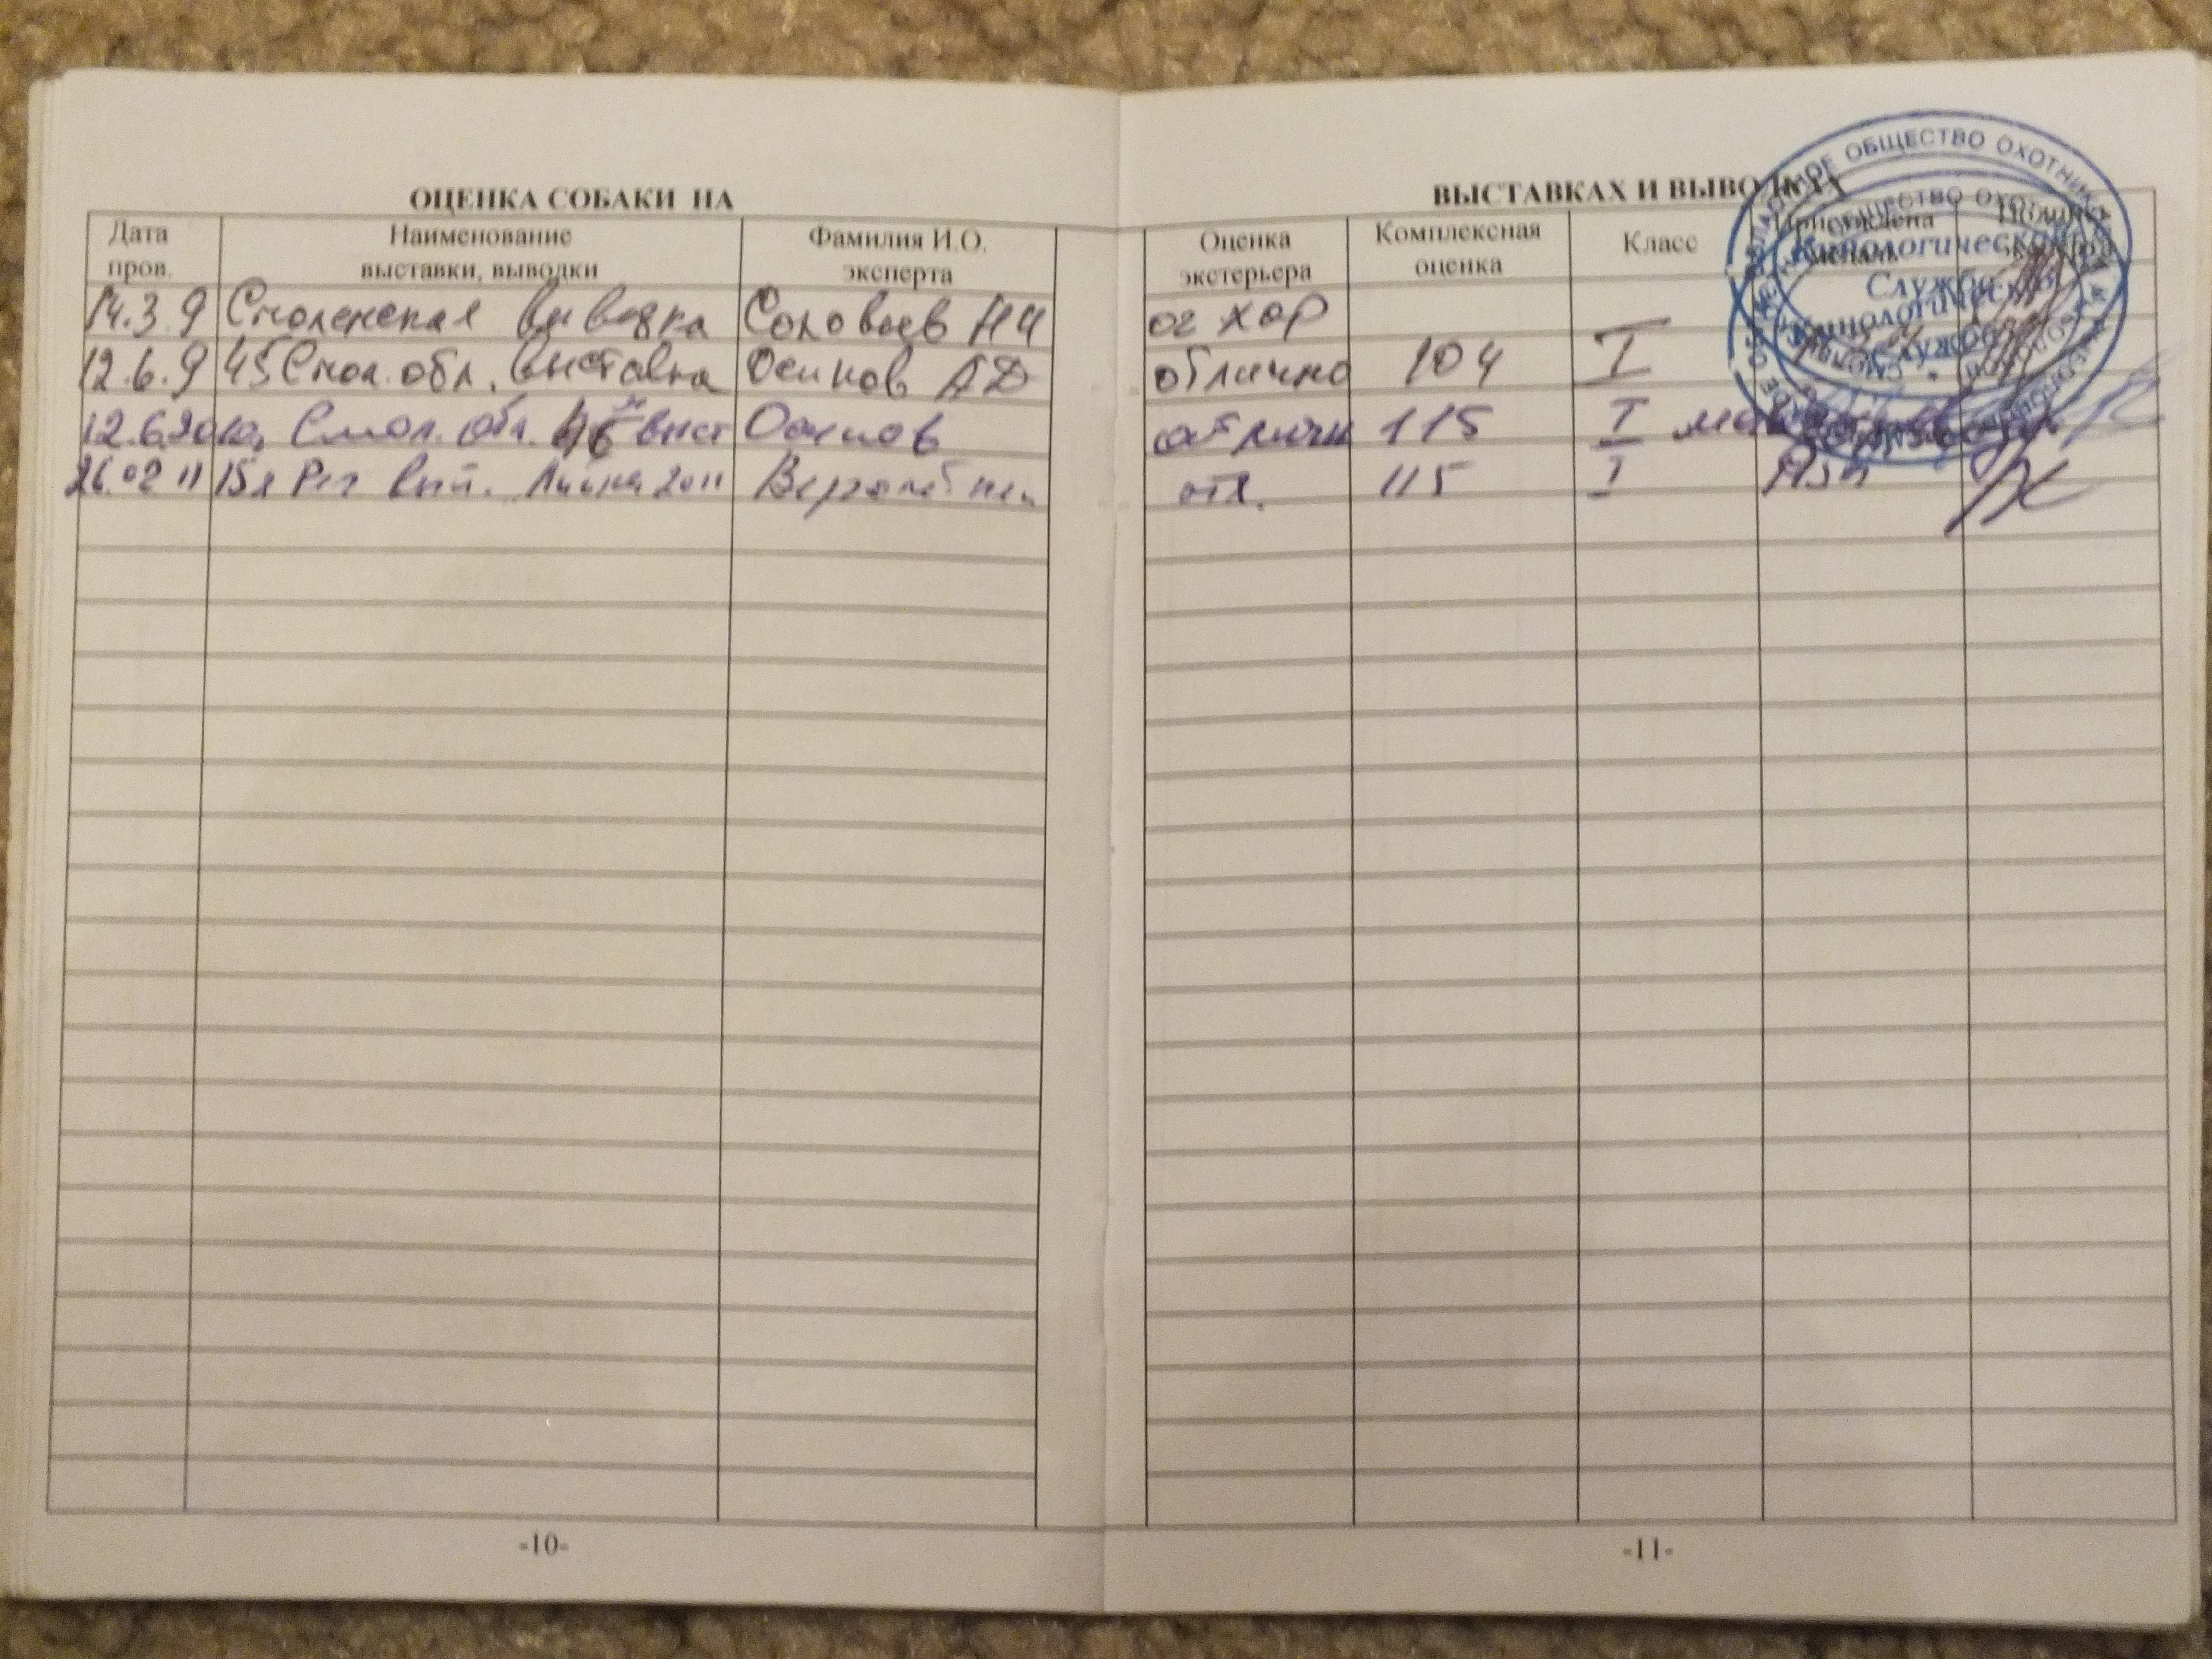 ОЦЕНКА СОБАКИ НА ВЫСТАВКАХ И ВЫВОДКАХ
Дата пров. Наименование выставки, выводки Фамилия И.О. эксперта Оценка экстерьера Комплексная оценка Класс Присуждена
14.3.9 Смоленская выводка Соловьев НИ оч хор
12.6.9 45 Смол. обл. выставка Осипов АД отлично 104 I
12.6.2010г. Смол. обл. 46 выст Осипов отличн 115 I
26.02 11 15я Рег выст. 2011 отл. 115 I
ОБЩЕСТВО ОХОТНИКОВ
Кинологическая
Служба
Кинологическая
Служба
-10-
-11-